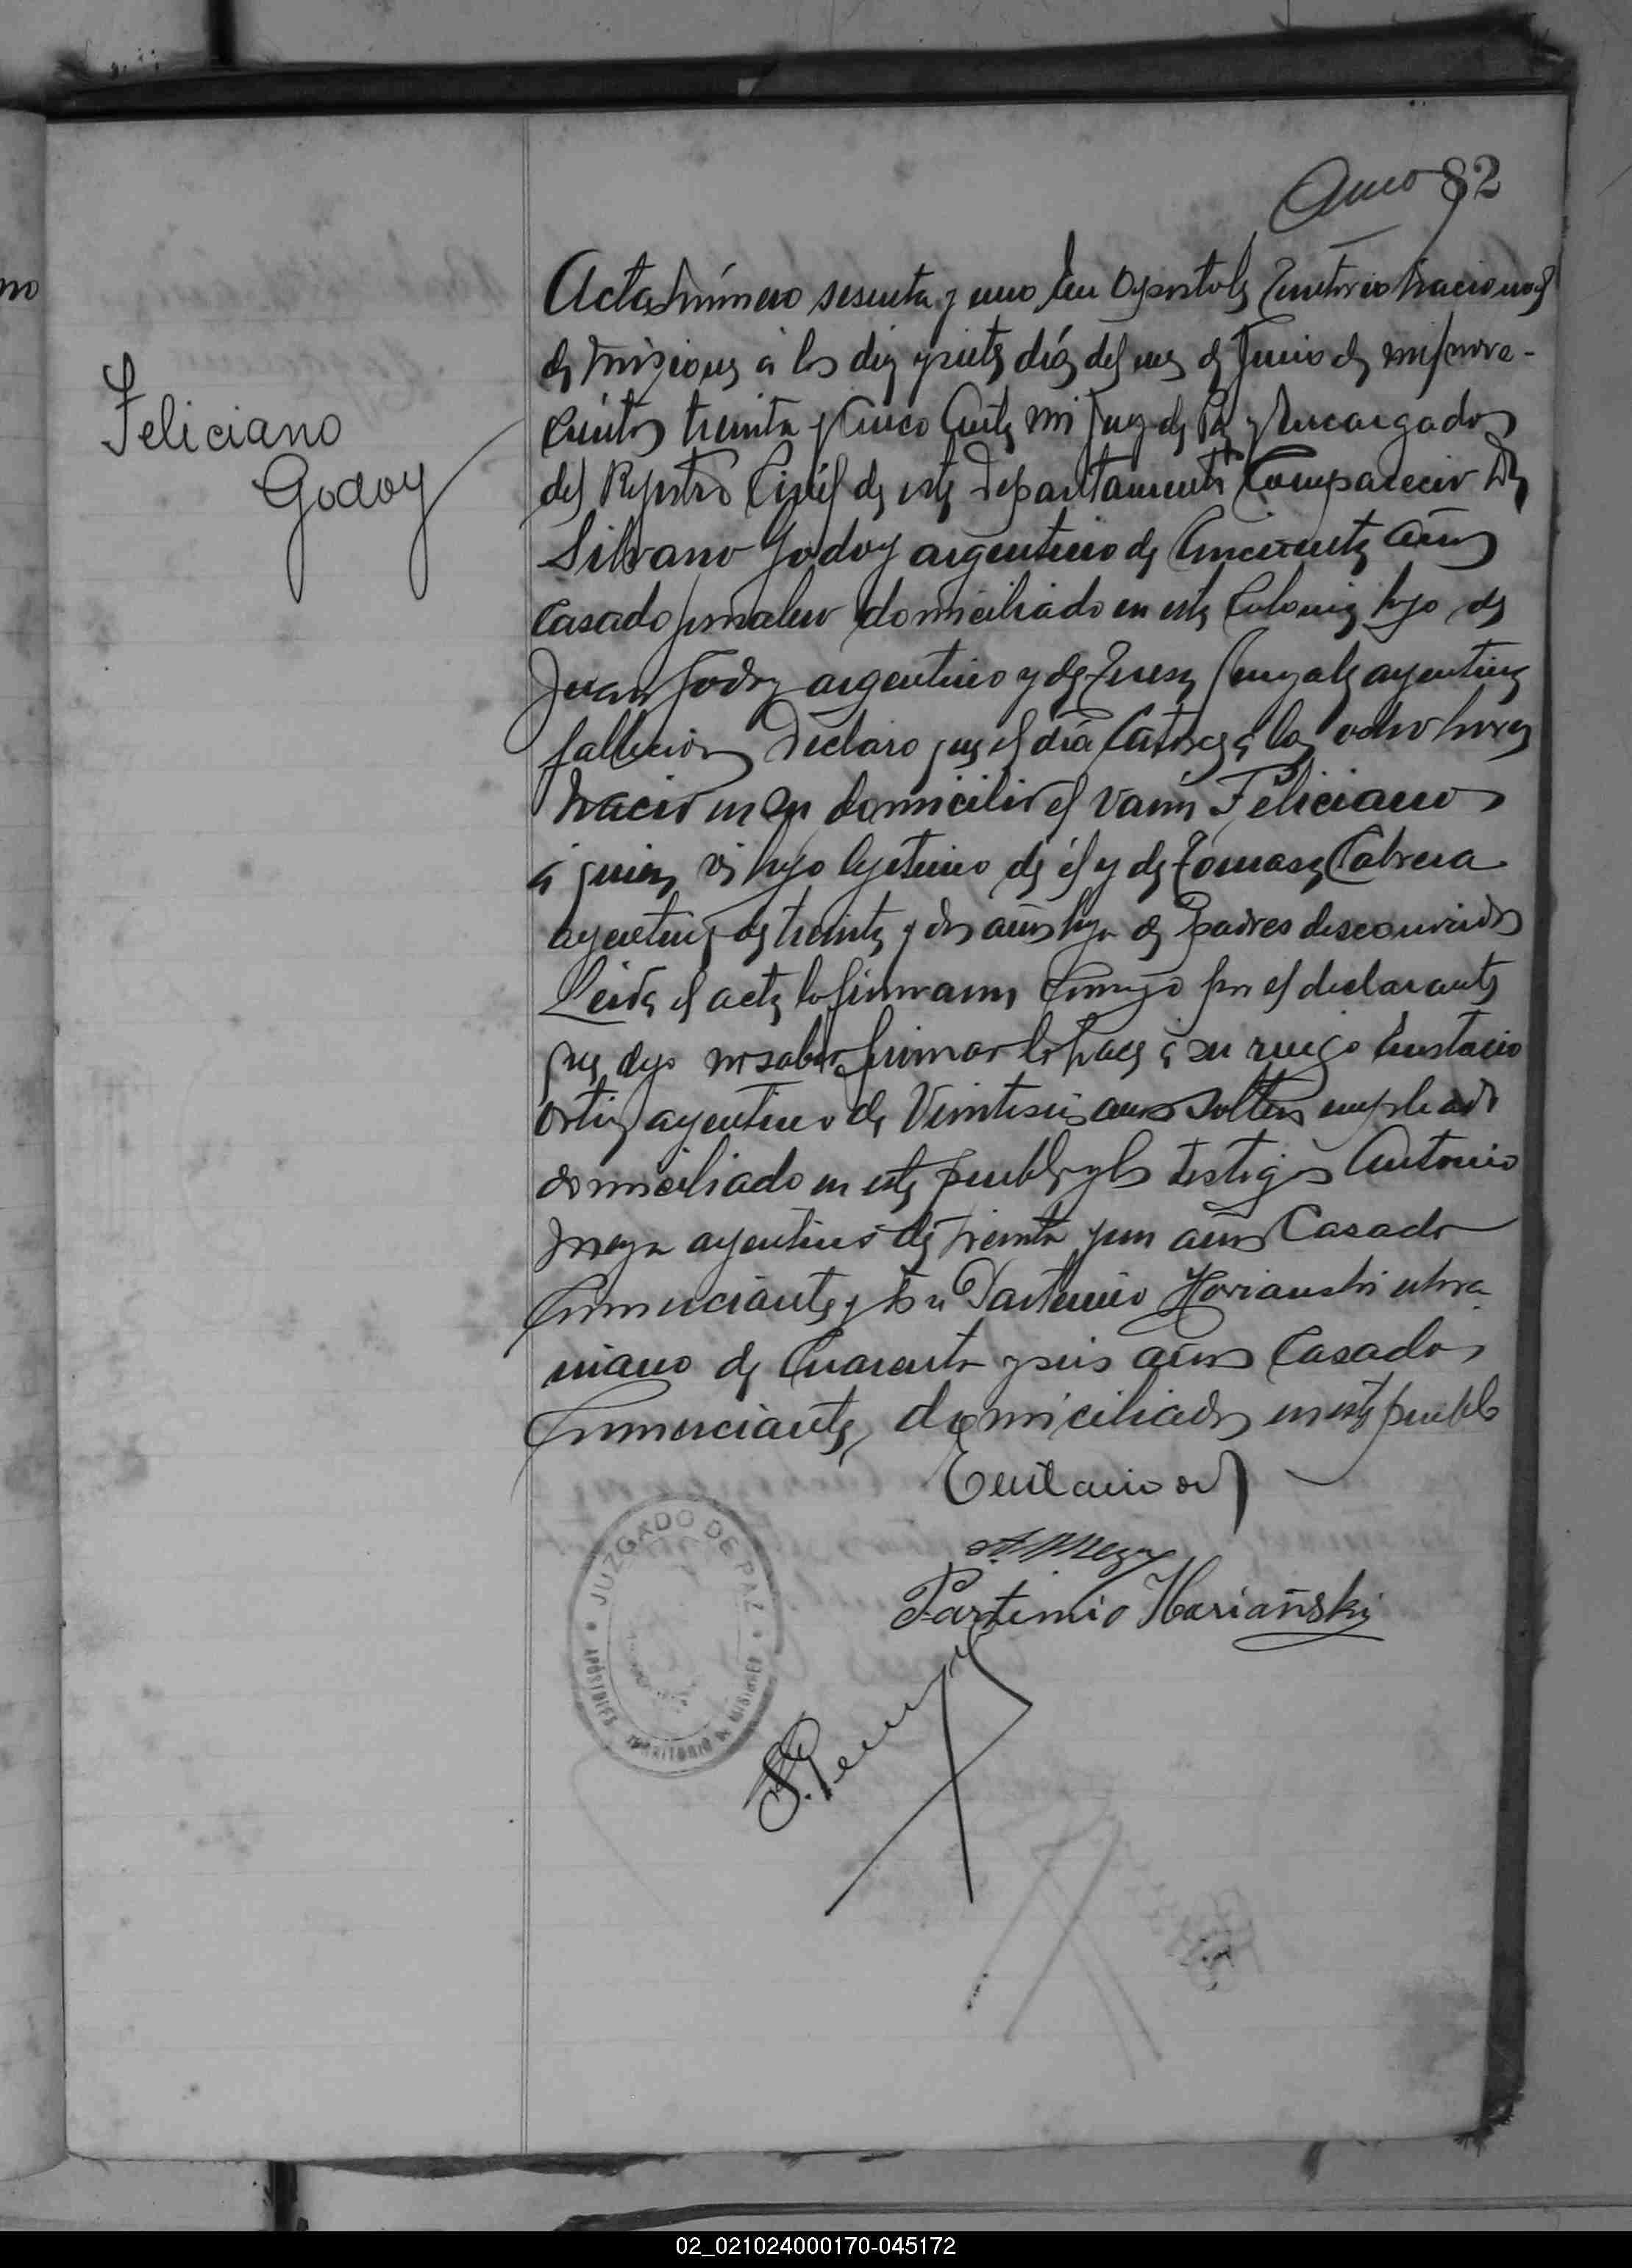 82
Acta Número sesenta y uno En Apostoles Territorio Nacional
de Misiones á los diez y siete días del mes de Junio de mil nove-
cientos treinta y cinco Ante mi Juez de Paz y Encargado
del Registro Civil de este Departamento Compareció Dn
Silvano Godoy argentino de Cincuenta años
Casado jornalero domiciliado en esta Colonia hijo de
Juan Godoy argentino y de Teresa argentina
fallecidos Declaro que el día Catorce á las ocho horas
Nació en su domicilio el varón Feliciano
á quien vi hijo legitimo de él y de Tomasa Cabrera
argentina de treinta y dos años hija de Padres desconocidos
Leida el acta la firmaron Conmigo por el declarante
que dijo no saber firmar lo hace á su ruego Eustacio
Ortiz argentino de Veintiseis años soltero empleado
domiciliado en este pueblo y los testigos Antonio
Meza argentino de treinta y un años Casado
Comerciante y Don Partenio Horianski ukra-
niano de Cuarenta y seis años Casado
Comerciante, domiciliados en este pueblo
Feliciano
Godoy
A. Meza
Partenio Horiański
JUZGADO DE PAZ
APÓSTOLES TERRITORIO DE MISIONES
no
02_021024000170-045172